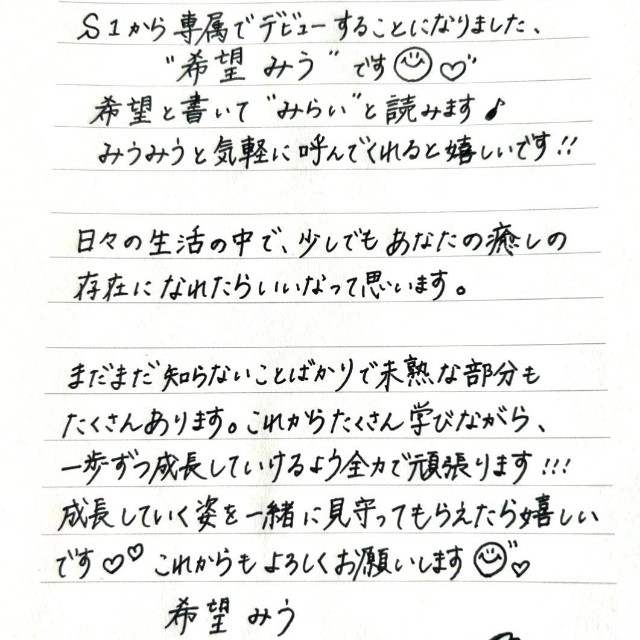 S1から専属でデビューすることになりました、
"希望 みう" です☺♡"
希望と書いて"みらい"と読みます♪
みうみうと気軽に呼んでくれると嬉しいです!!
日々の生活の中で、少しでもあなたの癒しの
存在になれたらいいなって思います。
まだまだ知らないことばかりで未熟な部分も
たくさんあります。これからたくさん学びながら、
一歩ずつ成長していけるよう全力で頑張ります!!!
成長していく姿を一緒に見守ってもらえたら嬉しい
です♡♡ これからもよろしくお願いします☺"♡
希望 みう